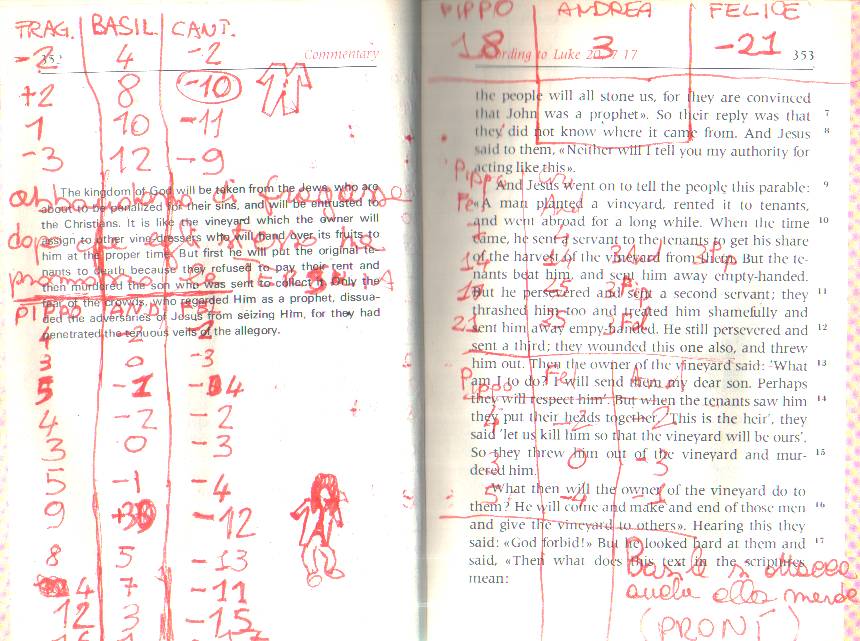 FRAG. BASIL CANT.
-2 4 -2
352 Commentary
+2 8 -10
1 10 -11
-3 12 -9
The kingdom of God will be taken from the Jews, who are
about to be penalized for their sins, and will be entrusted to
the Christians. It is like the vineyard which the owner will
assign to other vine-dressers who will hand over its fruits to
him at the proper time. But first he will put the original te-
nants to death because they refused to pay their rent and
then murdered the son who was sent to collect it. Only the
fear of the crowds, who regarded Him as a prophet, dissua-
ded the adversaries of Jesus from seizing Him, for they had
penetrated the tenuous veils of the allegory.
abbiamo
dopo che
PIPPO AND
4 -2 -2
3 0 -3
5 -1 -4
4 -2 -2
3 0 -3
5 -1 -4
9 -12
8 5 -13
4 7 -11
12 3 -15
PIPPO ANDREA FELICE
18 3 -21
ording to Luke 20, 7 17 353
the people will all stone us, for they are convinced
that John was a prophet». So their reply was that 7
they did not know where it came from. And Jesus 8
said to them, «Neither will I tell you my authority for
acting like this».
And Jesus went on to tell the people this parable: 9
«A man planted a vineyard, rented it to tenants,
and went abroad for a long while. When the time 10
came, he sent a servant to the tenants to get his share
of the harvest of the vineyard from them. But the te-
nants beat him, and sent him away empty-handed.
But he persevered and sent a second servant; they 11
thrashed him too and treated him shamefully and
sent him away empy-handed. He still persevered and 12
sent a third; they wounded this one also, and threw
him out. Then the owner of the vineyard said: 'What 13
am I to do? I will send them my dear son. Perhaps
they will respect him'. But when the tenants saw him 14
they put their heads together. 'This is the heir', they
said 'let us kill him so that the vineyard will be ours'.
So they threw him out of the vineyard and mur- 15
dered him.
What then will the owner of the vineyard do to
them? He will come and make and end of those men 16
and give the vineyard to others». Hearing this they
said: «God forbid!» But he looked hard at them and 17
said, «Then what does this text in the scriptures
mean:
Pippo Fel And
4 -2 -2
3 0 -3
5 -4 -1
merde
(PRONT